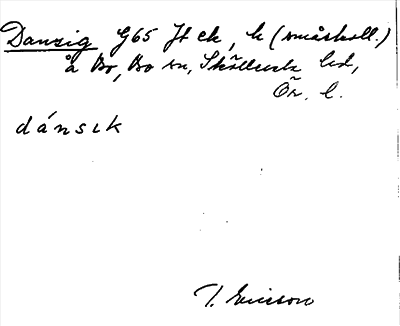 Danzig G65 Jt ek, h (småskoll.)
å Bo, Bo sn, Sköllersta hd,
Ör. l.
dánsık
T. Ericsson